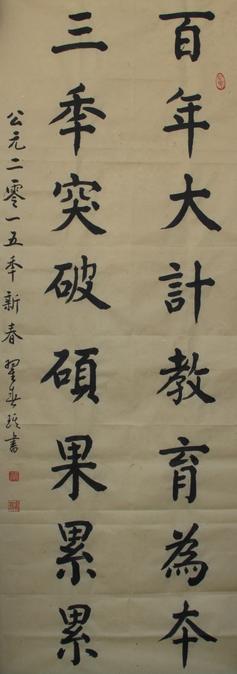 百年大計教育為本
三季突破碩果累累
公元二零一五年新春翟书